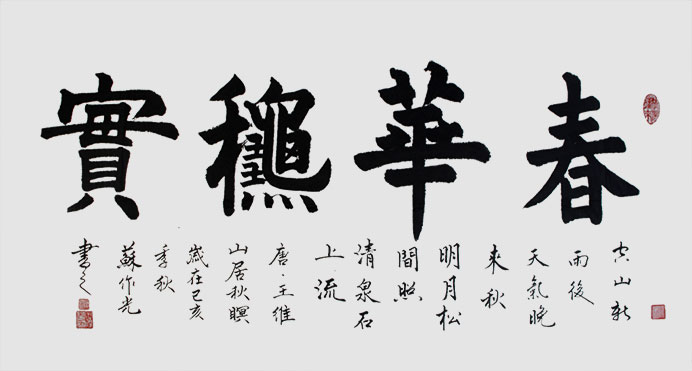 春華龝實
空山新
雨後
天氣晚
來秋
明月松
間照
清泉石
上流
唐·王維
山居秋暝
歲在己亥
季秋
蘇作光
書之